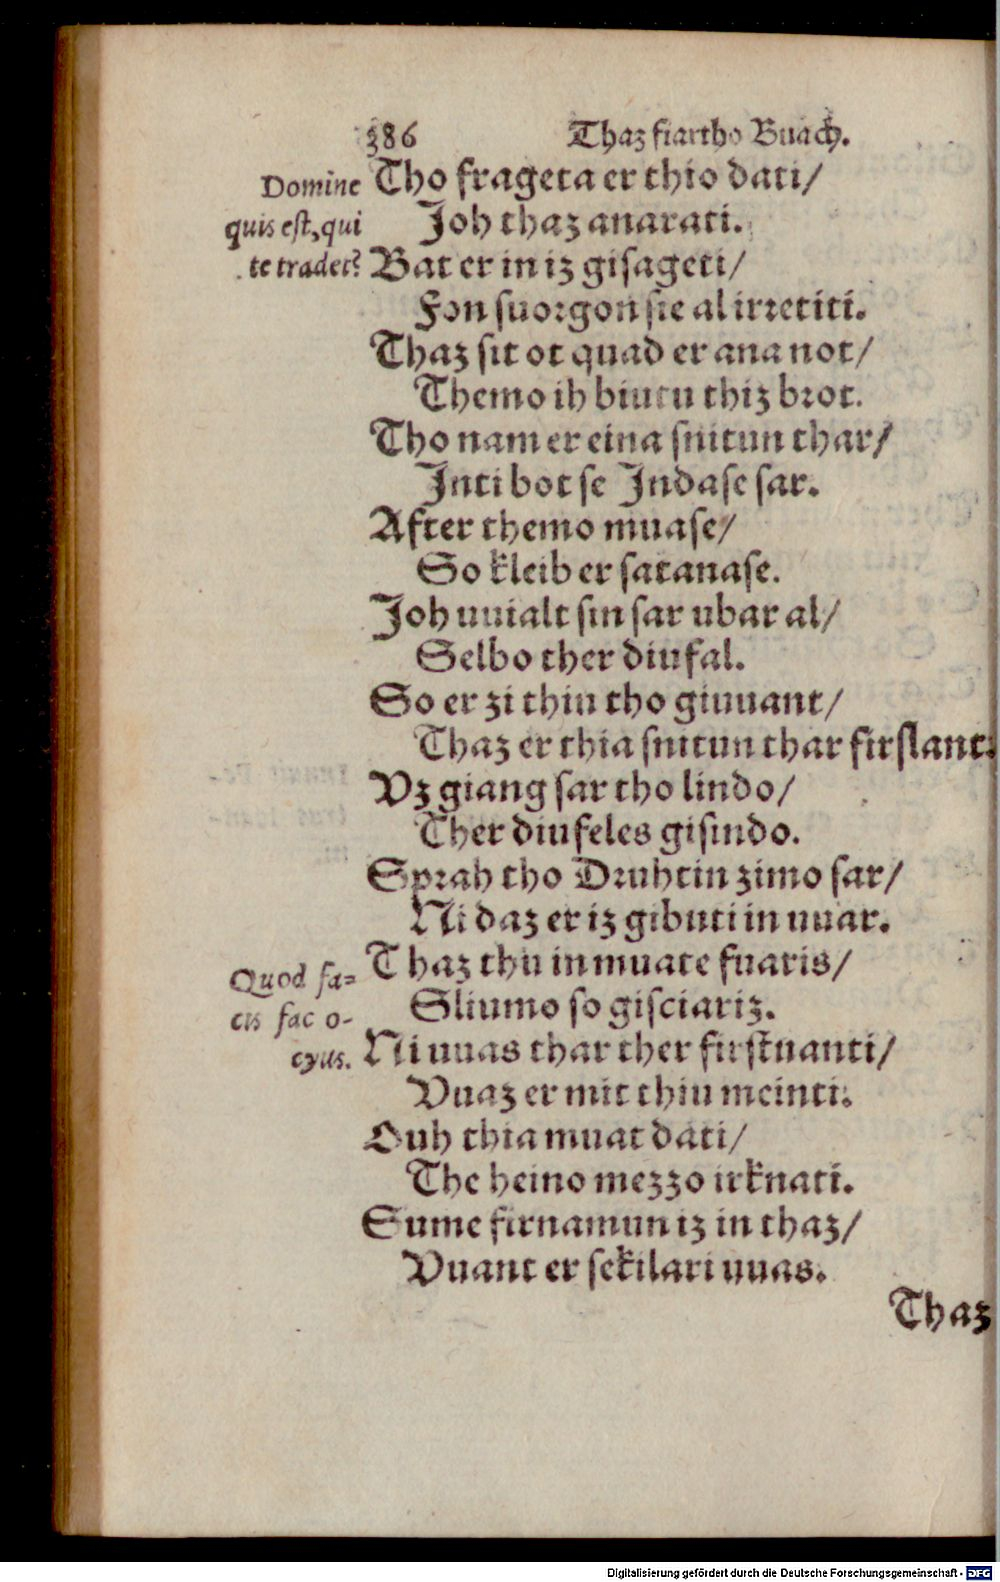 386 Thaz fiartho Buach.
Domine
quis est, qui
te tradet?
Tho frageta er thio dati/
Joh thaz anarati.
Bat er in iz gisageti/
Fon suorgon sie al irretiti.
Thaz sit ot quad er ana not/
Themo ih biutu thiz brot.
Tho nam er eina snitun thar/
Inti bot se Judase sar.
After themo muase/
So kleib er satanase.
Joh uuialt sin sar ubar al/
Selbo ther diufal.
So er zi thiu tho giuuant/
Thaz er thia snitun thar firslant.
Vz giang sar tho lindo/
Ther diufeles gisindo.
Sprah tho Druhtin zimo sar/
Ni daz er iz gibuti in uuar.
Quod fa=
cis fac o-
cyus.
Thaz thu in muate fuaris/
Sliumo so gisciariz.
Ni uuas thar ther firstuanti/
Vuaz er mit thiu meinti.
Ouh thia muat dati/
The heino mezzo irknati.
Sume firnamun iz in thaz/
Vuant er sekilari uuas.
Thaz
Digitalisierung gefördert durch die Deutsche Forschungsgemeinschaft - DFG